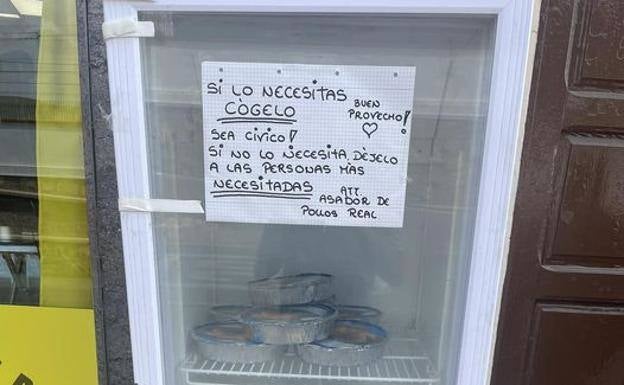 SI LO NECESITAS
CÒGELO
BUEN
PROVECHO!
SEA CÍVICO!
SI NO LO NECESITA DÈJELO
A LAS PERSONAS MÀS
NECESITADAS
ATT.
ASADOR DE
POLLOS REAL